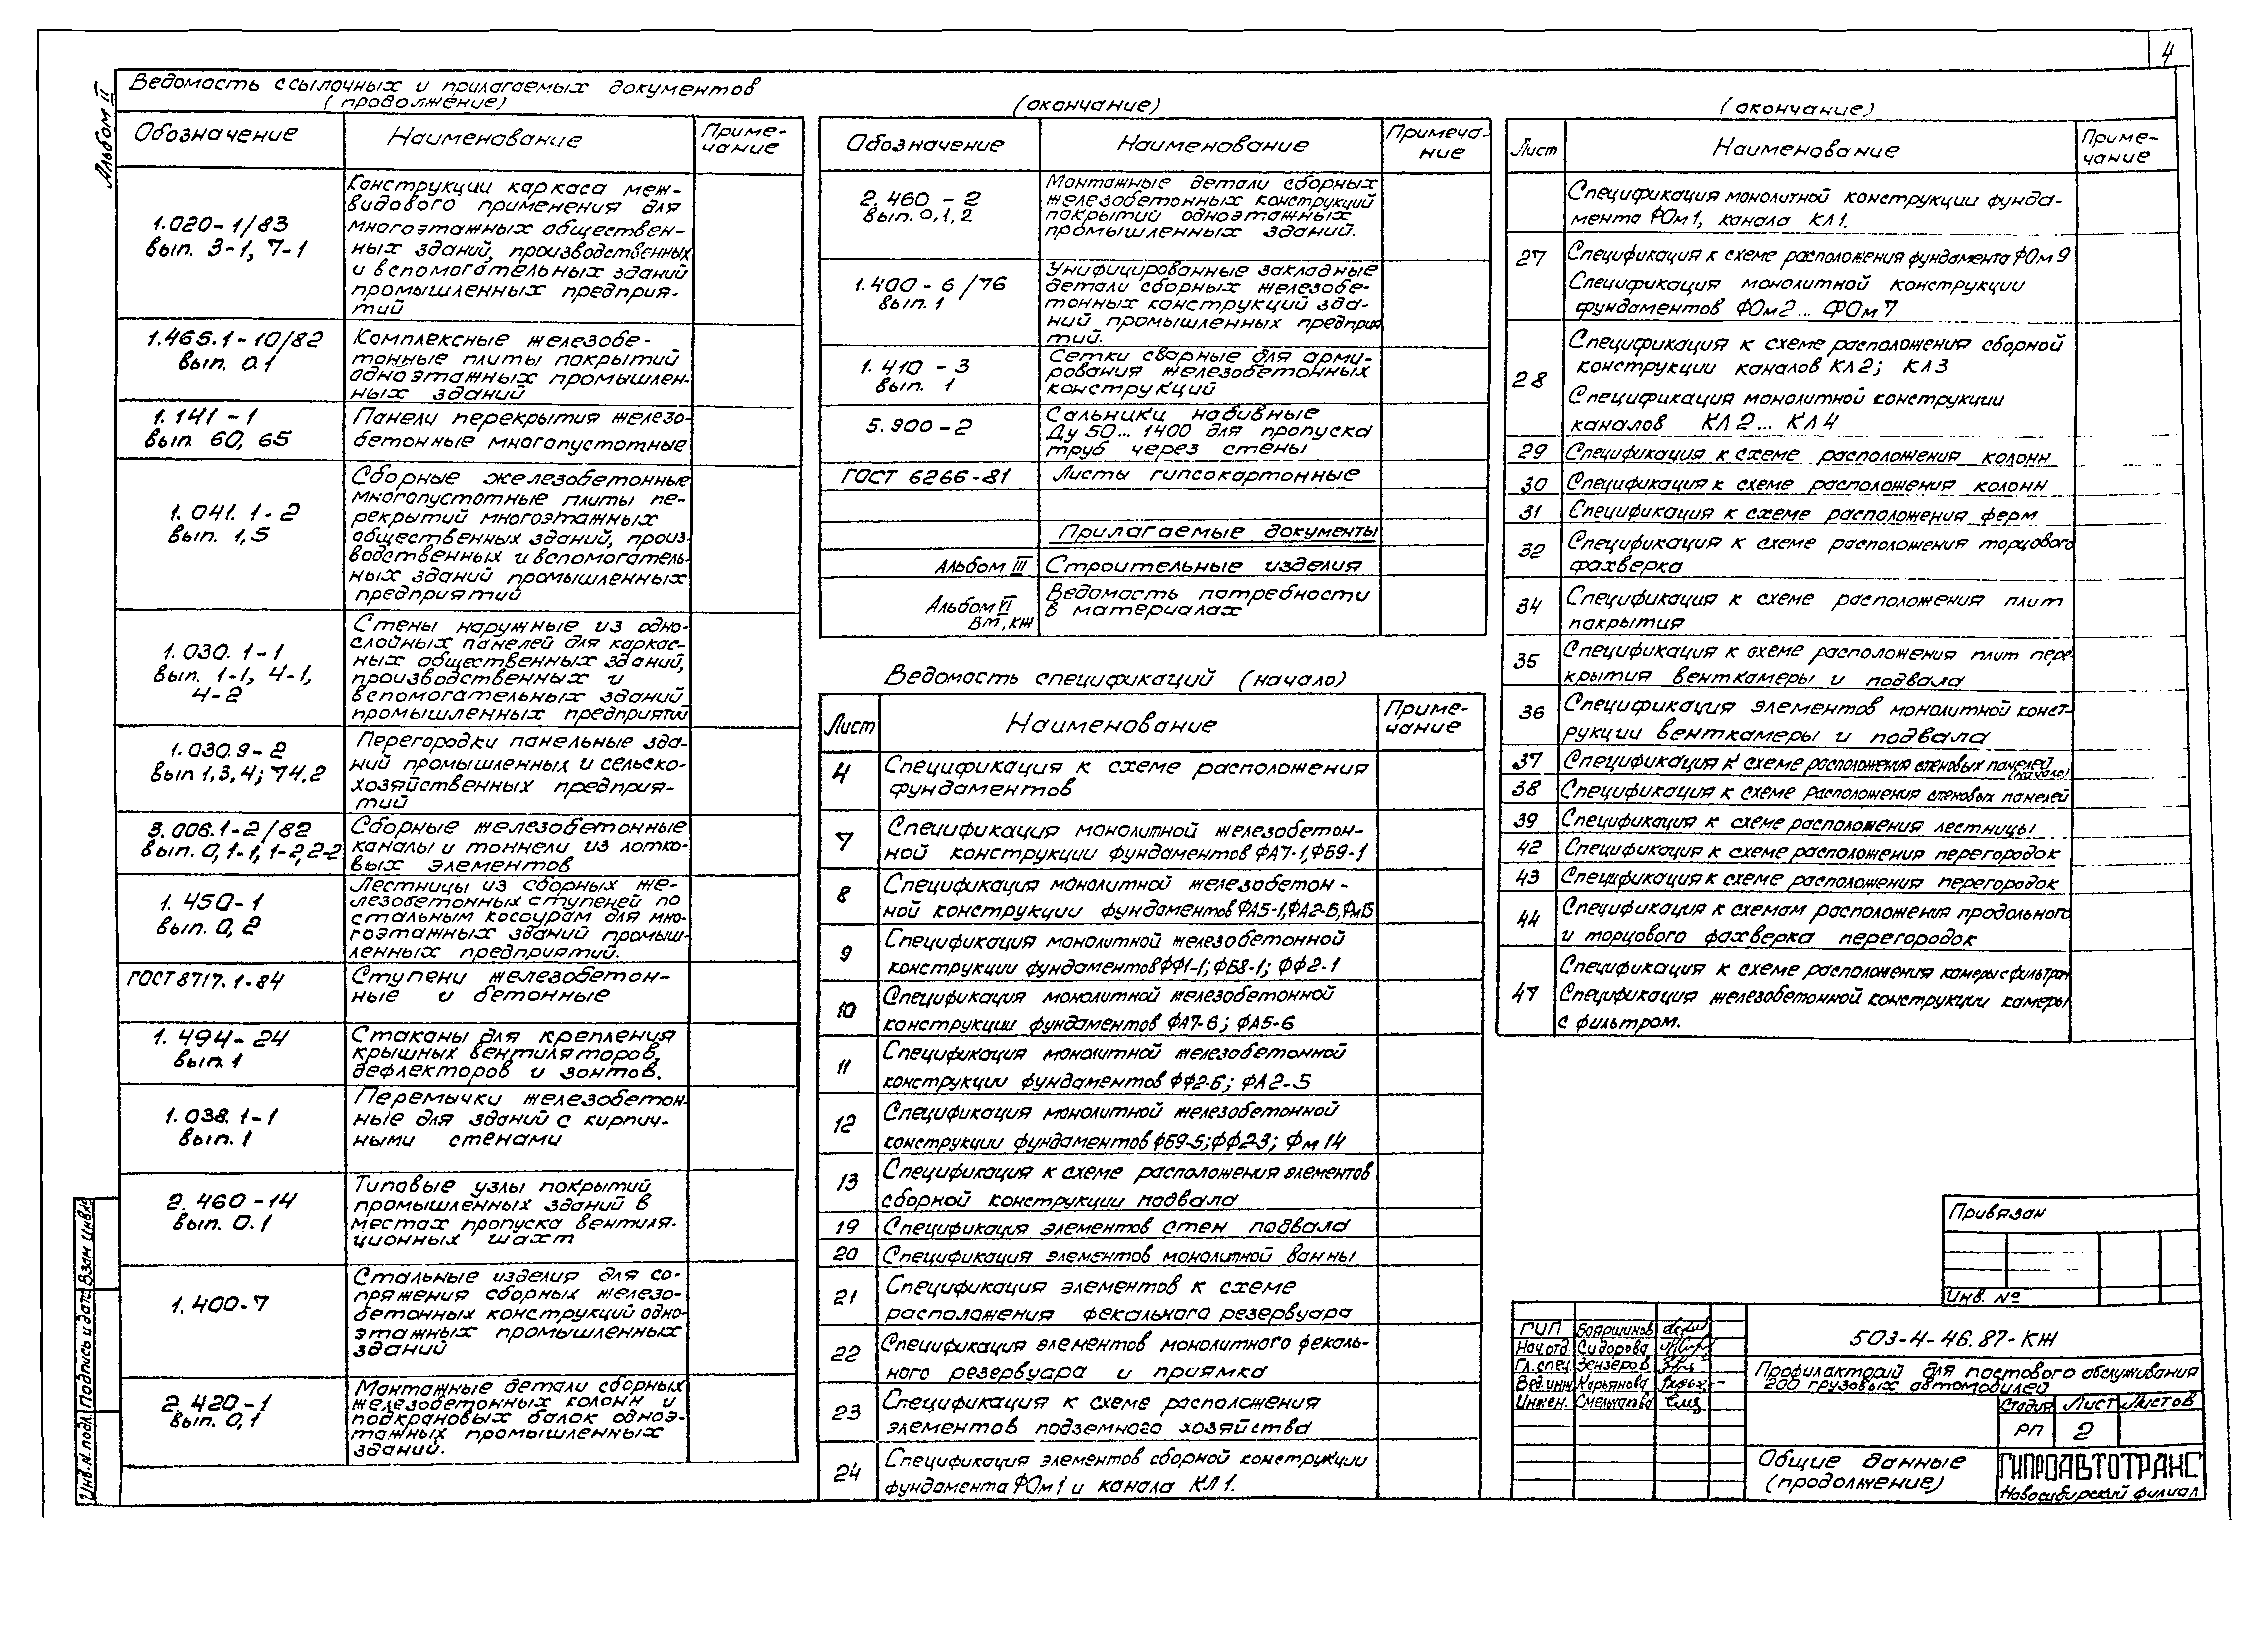 4
Альбом II
Ведомость ссылочных и прилагаемых документов
(продолжение)
Обозначение
Наименование
Приме-
чание
1.020-1/83
вып. 3-1, 7-1
Конструкции каркаса меж-
видового применения для
многоэтажных обществен-
ных зданий, производственных
и вспомогательных зданий
промышленных предприя-
тий
1.465.1-10/82
вып. 0.1
Комплексные железобе-
тонные плиты покрытий
одноэтажных промышлен-
ных зданий
1.141-1
вып. 60, 65
Панели перекрытия железо-
бетонные многопустотные
1.041.1-2
вып. 1,5
Сборные железобетонные
многопустотные плиты пе-
рекрытий многоэтажных
общественных зданий, произ-
водственных и вспомогатель-
ных зданий промышленных
предприятий
1.030.1-1
вып. 1-1, 4-1,
4-2
Стены наружные из одно-
слойных панелей для каркас-
ных общественных зданий,
производственных и
вспомогательных зданий
промышленных предприятий
1.030.9-2
вып 1,3,4; 74,2
Перегородки панельные зда-
ний промышленных и сельско-
хозяйственных предприя-
тий
3.006.1-2/82
вып. 0, 1-1, 1-2, 2-2
Сборные железобетонные
каналы и тоннели из лотко-
вых элементов
1.450-1
вып. 0,2
Лестницы из сборных же-
лезобетонных ступеней по
стальным косоурам для мно-
гоэтажных зданий промыш-
ленных предприятий.
ГОСТ 8717.1-84
Ступени железобетон-
ные и бетонные
1.494-24
вып. 1
Стаканы для крепления
крышных вентиляторов,
дефлекторов и зонтов.
1.038.1-1
вып. 1
Перемычки железобетон-
ные для зданий с кирпич-
ными стенами
2.460-14
вып. 0.1
Типовые узлы покрытий
промышленных зданий в
местах пропуска вентиля-
ционных шахт
1.400-7
Стальные изделия для со-
пряжения сборных железо-
бетонных конструкций одно-
этажных промышленных
зданий
2.420-1
вып. 0,1
Монтажные детали сборных
железобетонных колонн и
подкрановых балок одноэ-
тажных промышленных
зданий.
(окончание)
Обозначение
Наименование
Примеча-
ние
2.460-2
вып. 0,1,2
Монтажные детали сборных
железобетонных конструкций
покрытий одноэтажных
промышленных зданий.
1.400-6/76
вып. 1
Унифицированные закладные
детали сборных железобе-
тонных конструкций зда-
ний промышленных предприя
тий.
1.410-3
вып. 1
Сетки сварные для арми-
рования железобетонных
конструкций
5.900-2
Сальники набивные
Ду 50... 1400 для пропуска
труб через стены
ГОСТ 6266-81
Листы гипсокартонные
Прилагаемые документы
Альбом III
Строительные изделия
Альбом VI
Вм, кж
Ведомость потребности
в материалах
Ведомость спецификаций (начало)
Лист
Наименование
Приме-
чание
4
Спецификация к схеме расположения
фундаментов
7
Спецификация монолитной железобетон-
ной конструкции фундаментов ФА7-1, ФБ9-1
8
Спецификация монолитной железобетон-
ной конструкции фундаментов ФА5-1, ФА2-6, Фм15
9
Спецификация монолитной железобетонной
конструкции фундаментов ФФ1-1; ФБ8-1; ФФ2-1
10
Спецификация монолитной железобетонной
конструкции фундаментов ФА7-6; ФА5-6
11
Спецификация монолитной железобетонной
конструкции фундаментов ФФ2-6; ФА2-5
12
Спецификация монолитной железобетонной
конструкции фундаментов ФБ9-5; ФФ2-3; Фм 14
13
Спецификация к схеме расположения элементов
сборной конструкции подвала
19
Спецификация элементов стен подвала
20
Спецификация элементов монолитной ванны
21
Спецификация элементов к схеме
расположения фекального резервуара
22
Спецификация элементов монолитного фекаль-
ного резервуара и приямка
23
Спецификация к схеме расположения
элементов подземного хозяйства
24
Спецификация элементов сборной конструкции
фундамента ФОм1 и канала КЛ1.
(окончание)
Лист
Наименование
Приме-
чание
Спецификация монолитной конструкции фунда-
мента ФОм1, канала КЛ1.
27
Спецификация к схеме расположения фундамента ФОм 9
Спецификация монолитной конструкции
фундаментов ФОм2... ФОм7
28
Спецификация к схеме расположения сборной
конструкции каналов КЛ2; КЛ3
Спецификация монолитной конструкции
каналов КЛ2... КЛ4
29
Спецификация к схеме расположения колонн
30
Спецификация к схеме расположения колонн
31
Спецификация к схеме расположения ферм
32
Спецификация к схеме расположения торцового
фахверка
34
Спецификация к схеме расположения плит
покрытия
35
Спецификация к схеме расположения плит пере-
крытия венткамеры и подвала
36
Спецификация элементов монолитной конст-
рукции венткамеры и подвала
37
Спецификация к схеме расположения стеновых панелей
(начало)
38
Спецификация к схеме расположения стеновых панелей
39
Спецификация к схеме расположения лестницы
42
Спецификация к схеме расположения перегородок
43
Спецификация к схеме расположения перегородок
44
Спецификация к схемам расположения продольного
и торцового фахверка перегородок
47
Спецификация к схеме расположения камеры с фильтром
Спецификация железобетонной конструкции камеры
с фильтром.
Привязан
Инв. №
ГИП Бояршинов
Нач.отд. Сидорова
Гл.спец. Зензеров
Вед.инж Карьянова
Инжен.
503-4-46.87-КЖ
Профилакторий для постового обслуживания
200 грузовых автомобилей
Стадия Лист Листов
РП 2
Общие данные
(продолжение)
ГИПРОАВТОТРАНС
Новосибирский филиал
Инв. N. подл. Подпись и дата Взам. Инв. №